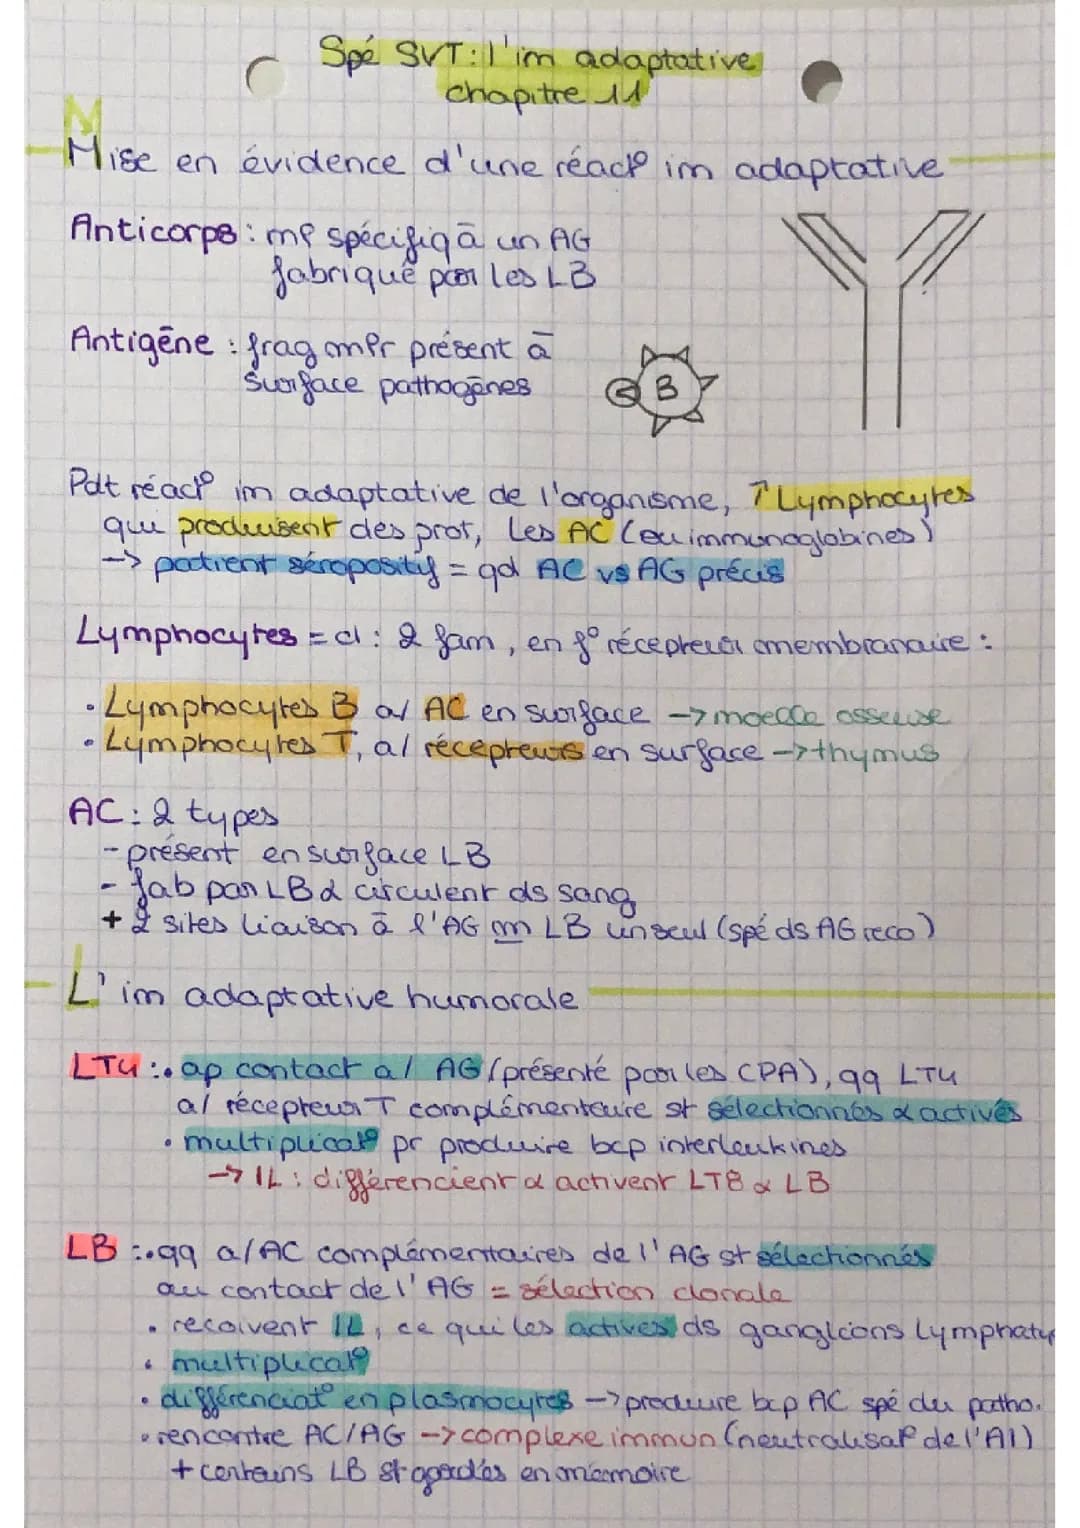 Spé SVT: l'im adaptative
chapitre 11
M
Mise en évidence d'une réact° im adaptative
Anticorps: mº spécifiq à un AG
fabriqué par les LB
Antigène : frag mºr présent à
surface pathogènes
B
Pdt réact° im adaptative de l'organisme, ↑ Lymphocytes
qui produisent des prot, les AC (ou immunoglobines)
-> patient séropositif = qd AC vs AG précis
Lymphocytes = cl : 2 fam, en f° récepteur membranaire :
• Lymphocytes B a/ AC en surface -> moelle osseuse
• Lymphocytes T, a/ récepteurs en surface -> thymus
AC : 2 types
- présent en surface LB
- fab par LB & circulent ds sang
+ 2 sites liaison à l'AG m LB un seul (spé ds AG reco)
L'im adaptative humorale
LT4 : • ap contact a/ AG (présenté par les CPA), qq LT4
a/ récepteur T complémentaire st sélectionnés & activés
• multiplicat° pr produire bcp interleukines
-> IL : différencient & activent LT8 & LB
LB : • qq a/ AC complémentaires de l'AG st sélectionnés
au contact de l'AG = sélection clonale
• recoivent IL, ce qui les actives ds ganglions lymphatq
• multiplicat°
• différenciat° en plasmocytes -> produire bcp AC spé du patho.
• rencontre AC/AG -> complexe immun (neutralisat° de l'AI)
+ certains LB st gardés en mémoire